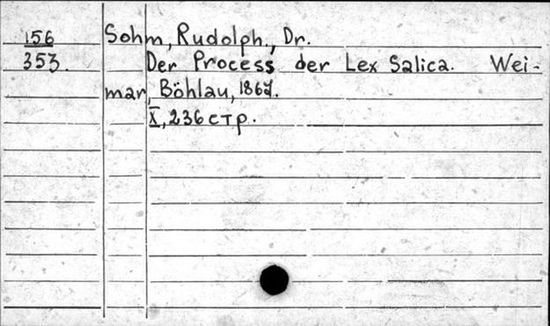 156 Sohm, Rudolph, Dr.
353. Der Process der Lex Salica. Wei-
mar, Böhlau, 1867.
X, 236 стр.